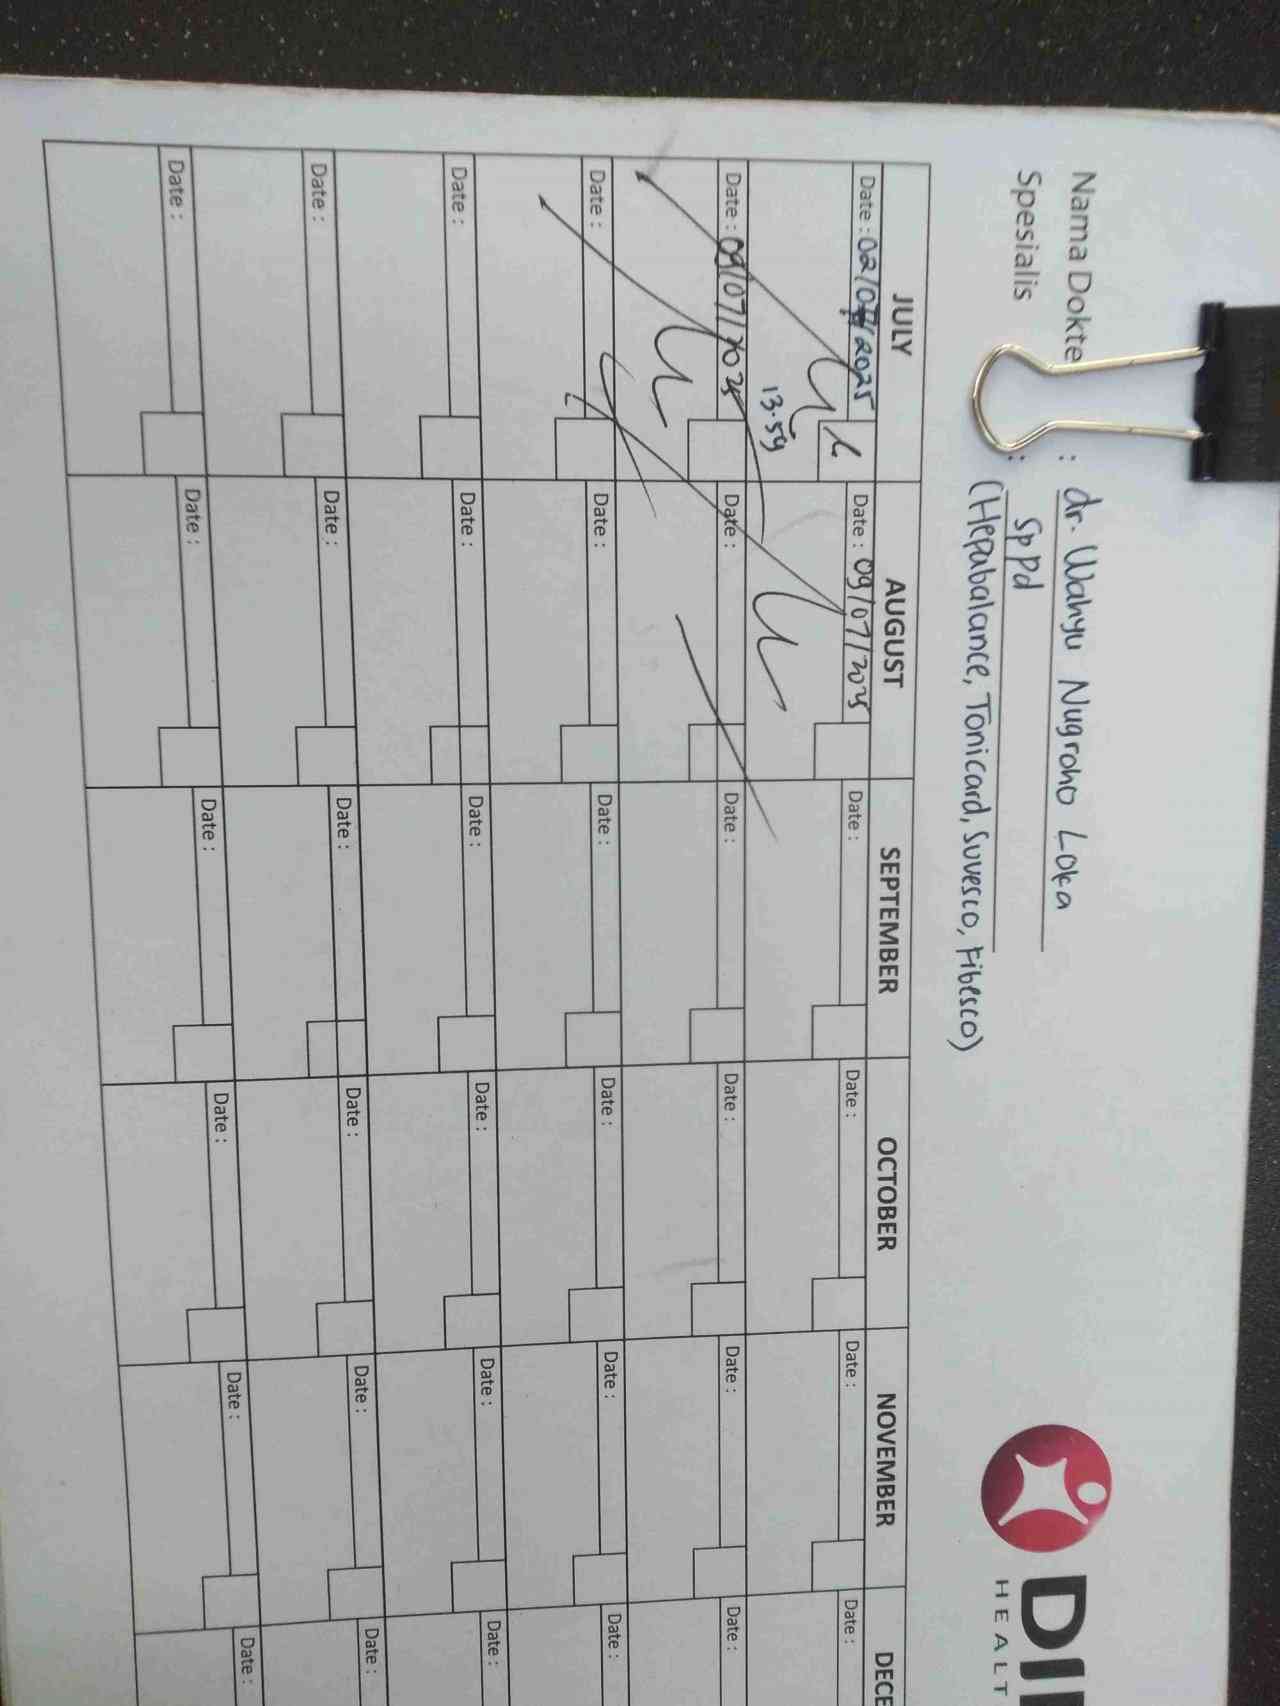 Nama Dokte : dr. Wahyu Nugroho Loka
Spesialis : Sppd
(Hepabalance, Tonicard, Suvesco, Fibesco)
HEALT
JULY AUGUST SEPTEMBER OCTOBER NOVEMBER DECE
Date : 02/07/2025 Date : 09/07/2025 Date : Date : Date : Date :
13.59
Date : 09/07/2025 Date : Date : Date : Date : Date :
Date : Date : Date : Date : Date : Date :
Date : Date : Date : Date : Date : Date :
Date : Date : Date : Date : Date : Date :
Date : Date : Date : Date : Date : Date :